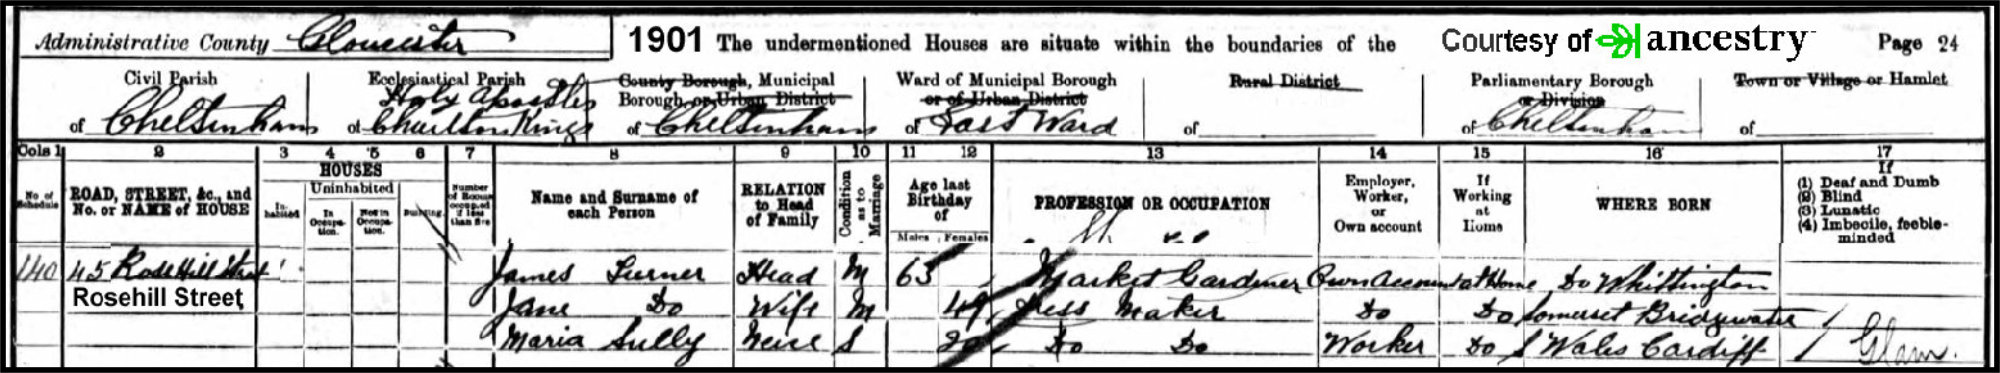 Administrative County Gloucester 1901 The undermentioned Houses are situate within the boundaries of the Courtesy of ancestry Page 24
Civil Parish Ecclesiastical Parish County Borough, Municipal Ward of Municipal Borough Rural District Parliamentary Borough Town or Village or Hamlet
Holy Apostles Borough, or Urban District or of Urban District or Division
of Cheltenham of Charlton Kings of Cheltenham of East Ward of of Cheltenham of
Cols 1 2 3 4 5 6 7 8 9 10 11 12 13 14 15 16 17
No of Schedule ROAD, STREET, &c., and No. or NAME of HOUSE HOUSES In-habited Uninhabited In Occupa-tion. Not in Occupa-tion. Building. Number of Rooms occupied if less than five Name and Surname of each Person RELATION to Head of Family Condition as to Marriage Age last Birthday of Males Females PROFESSION OR OCCUPATION Employer, Worker, or Own account If Working at Home WHERE BORN If (1) Deaf and Dumb (2) Blind (3) Lunatic (4) Imbecile, feeble-minded
140 45 Rosehill Street 1 James Turner Head M 63 Market Gardiner Own account at Home Do Whittington
Rosehill Street Jane Do Wife M 49 Dress Maker Do Do Somerset Bridgwater
Maria Sully Neice S 20 Do Do Worker Do S Wales Cardiff Glam.